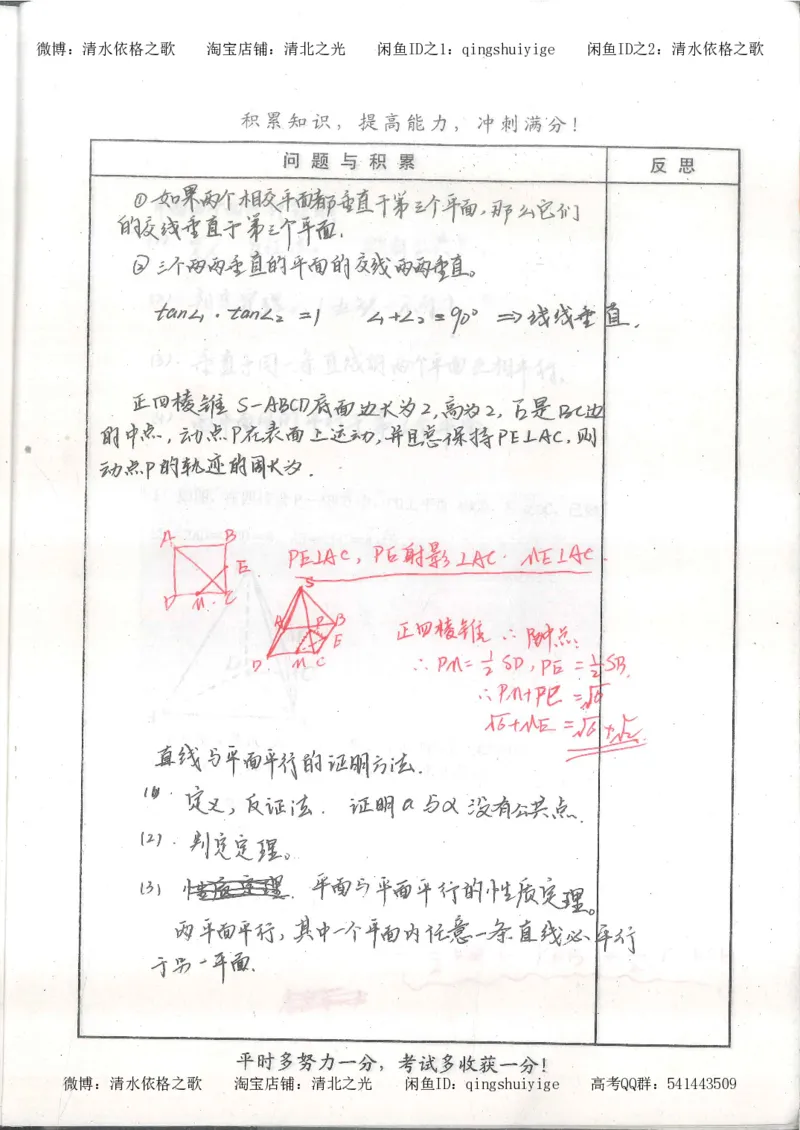 微博：清水依格之歌 淘宝店铺：清北之光 闲鱼ID之1：qingshuiyige 闲鱼ID之2：清水依格之歌
积累知识，提高能力，冲刺满分！
问题与积累 反思
①如果两个相交平面都垂直于第三个平面，那么它们
的交线垂直于第三个平面.
②三个两两垂直的平面的交线两两垂直。
tan∠1·tan∠2=1 ∠1+∠2=90° ⇒线线垂直.
正四棱锥S-ABCD底面边长为2,高为2,E是BC边
的中点,动点P在表面上运动,并且总保持PE⊥AC,则
动点P的轨迹的周长为.
A B
E
D M C
PE⊥AC,PE射影⊥AC. ME⊥AC
S
A P B
E
D M C
正四棱锥 ∴P中点;
∴PM=1/2SD,PE=1/2SB.
∴PM+PE=√6
√6+ME=√6+√2
直线与平面平行的证明方法.
(1).定义,反证法. 证明a与α没有公共点.
(2).判定定理。
(3) 性质定理. 平面与平面平行的性质定理。
两平面平行,其中一个平面内任意一条直线必平行
于另一平面.
平时多努力一分，考试多收获一分！
微博：清水依格之歌 淘宝店铺：清北之光 闲鱼ID：qingshuiyige 高考QQ群：541443509